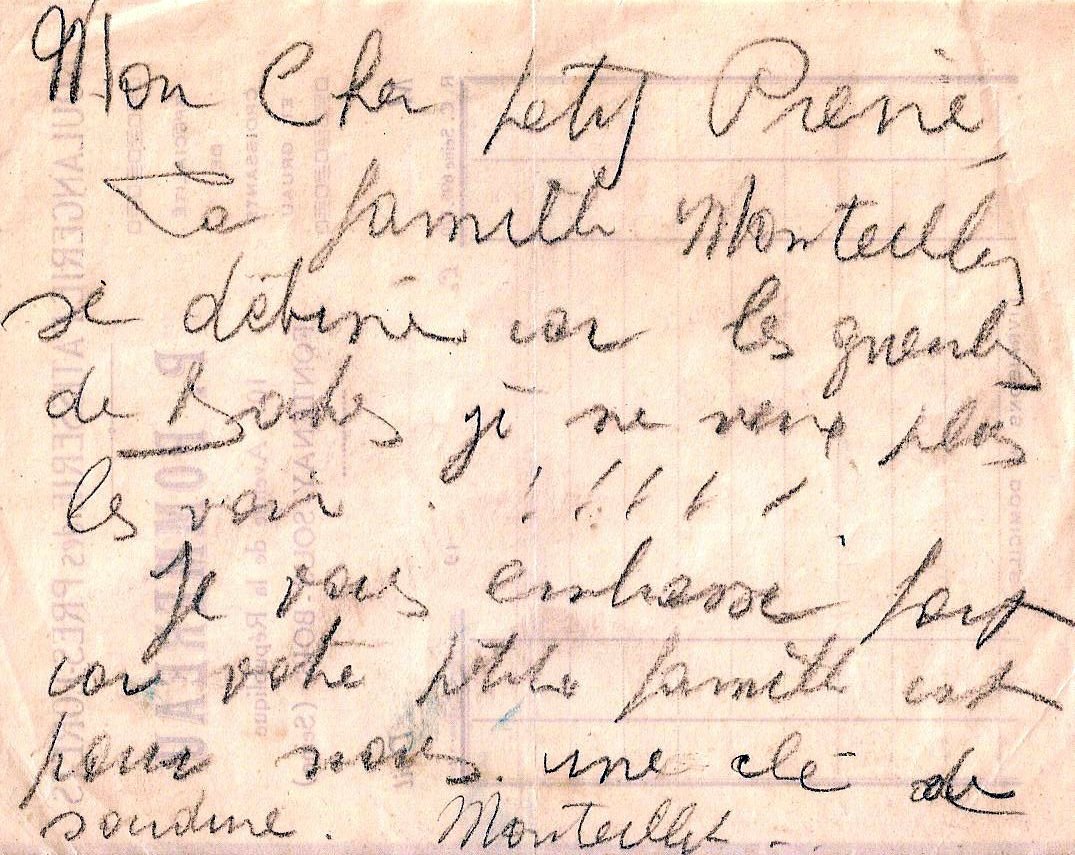 Mon Cher petit Pierre
La famille Monteillet
se débine car les gueules
de Boches je ne veux plus
les voir . ! ! ! ! !
Je vous embrasse fort
car votre petite famille est
pour nous une clé de
Monteillet